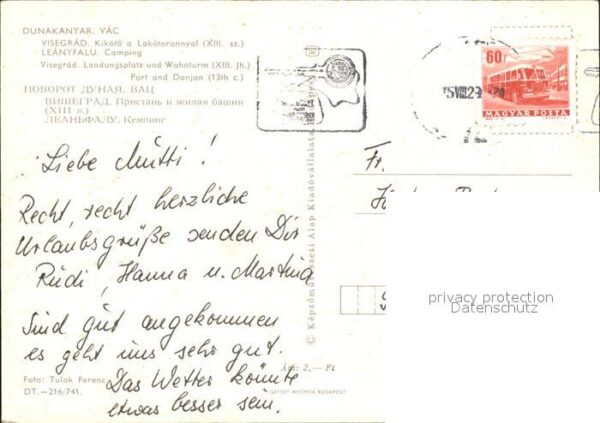 DUNAKANYAR. VÁC
VISEGRÁD. Kikötő a Lakótoronnyal (XIII. sz.)
LEÁNYFALU. Camping
Visegrád. Landungsplatz und Wohnturm (XIII. Jh.)
Port and Donjon (13th c.)
ПОВОРОТ ДУНАЯ. ВАЦ
ВИШЕГРАД. Пристань и жилая башня
(XIII в.)
ЛЕАНЬФАЛУ. Кемпинг
Liebe Mutti!
Recht, recht herzliche
Urlaubsgrüße senden Dir
Rudi, Hanna u. Martina
Sind gut angekommen
es geht uns sehr gut.
Das Wetter könnte
etwas besser sein.
Foto: Tulok Ferenc
DT.—216/741.
© Képzőművészeti Alap Kiadóvállalata
Ára: 2,— Ft
60f
MAGYAR POSTA
Fr.
privacy protection
Datenschutz